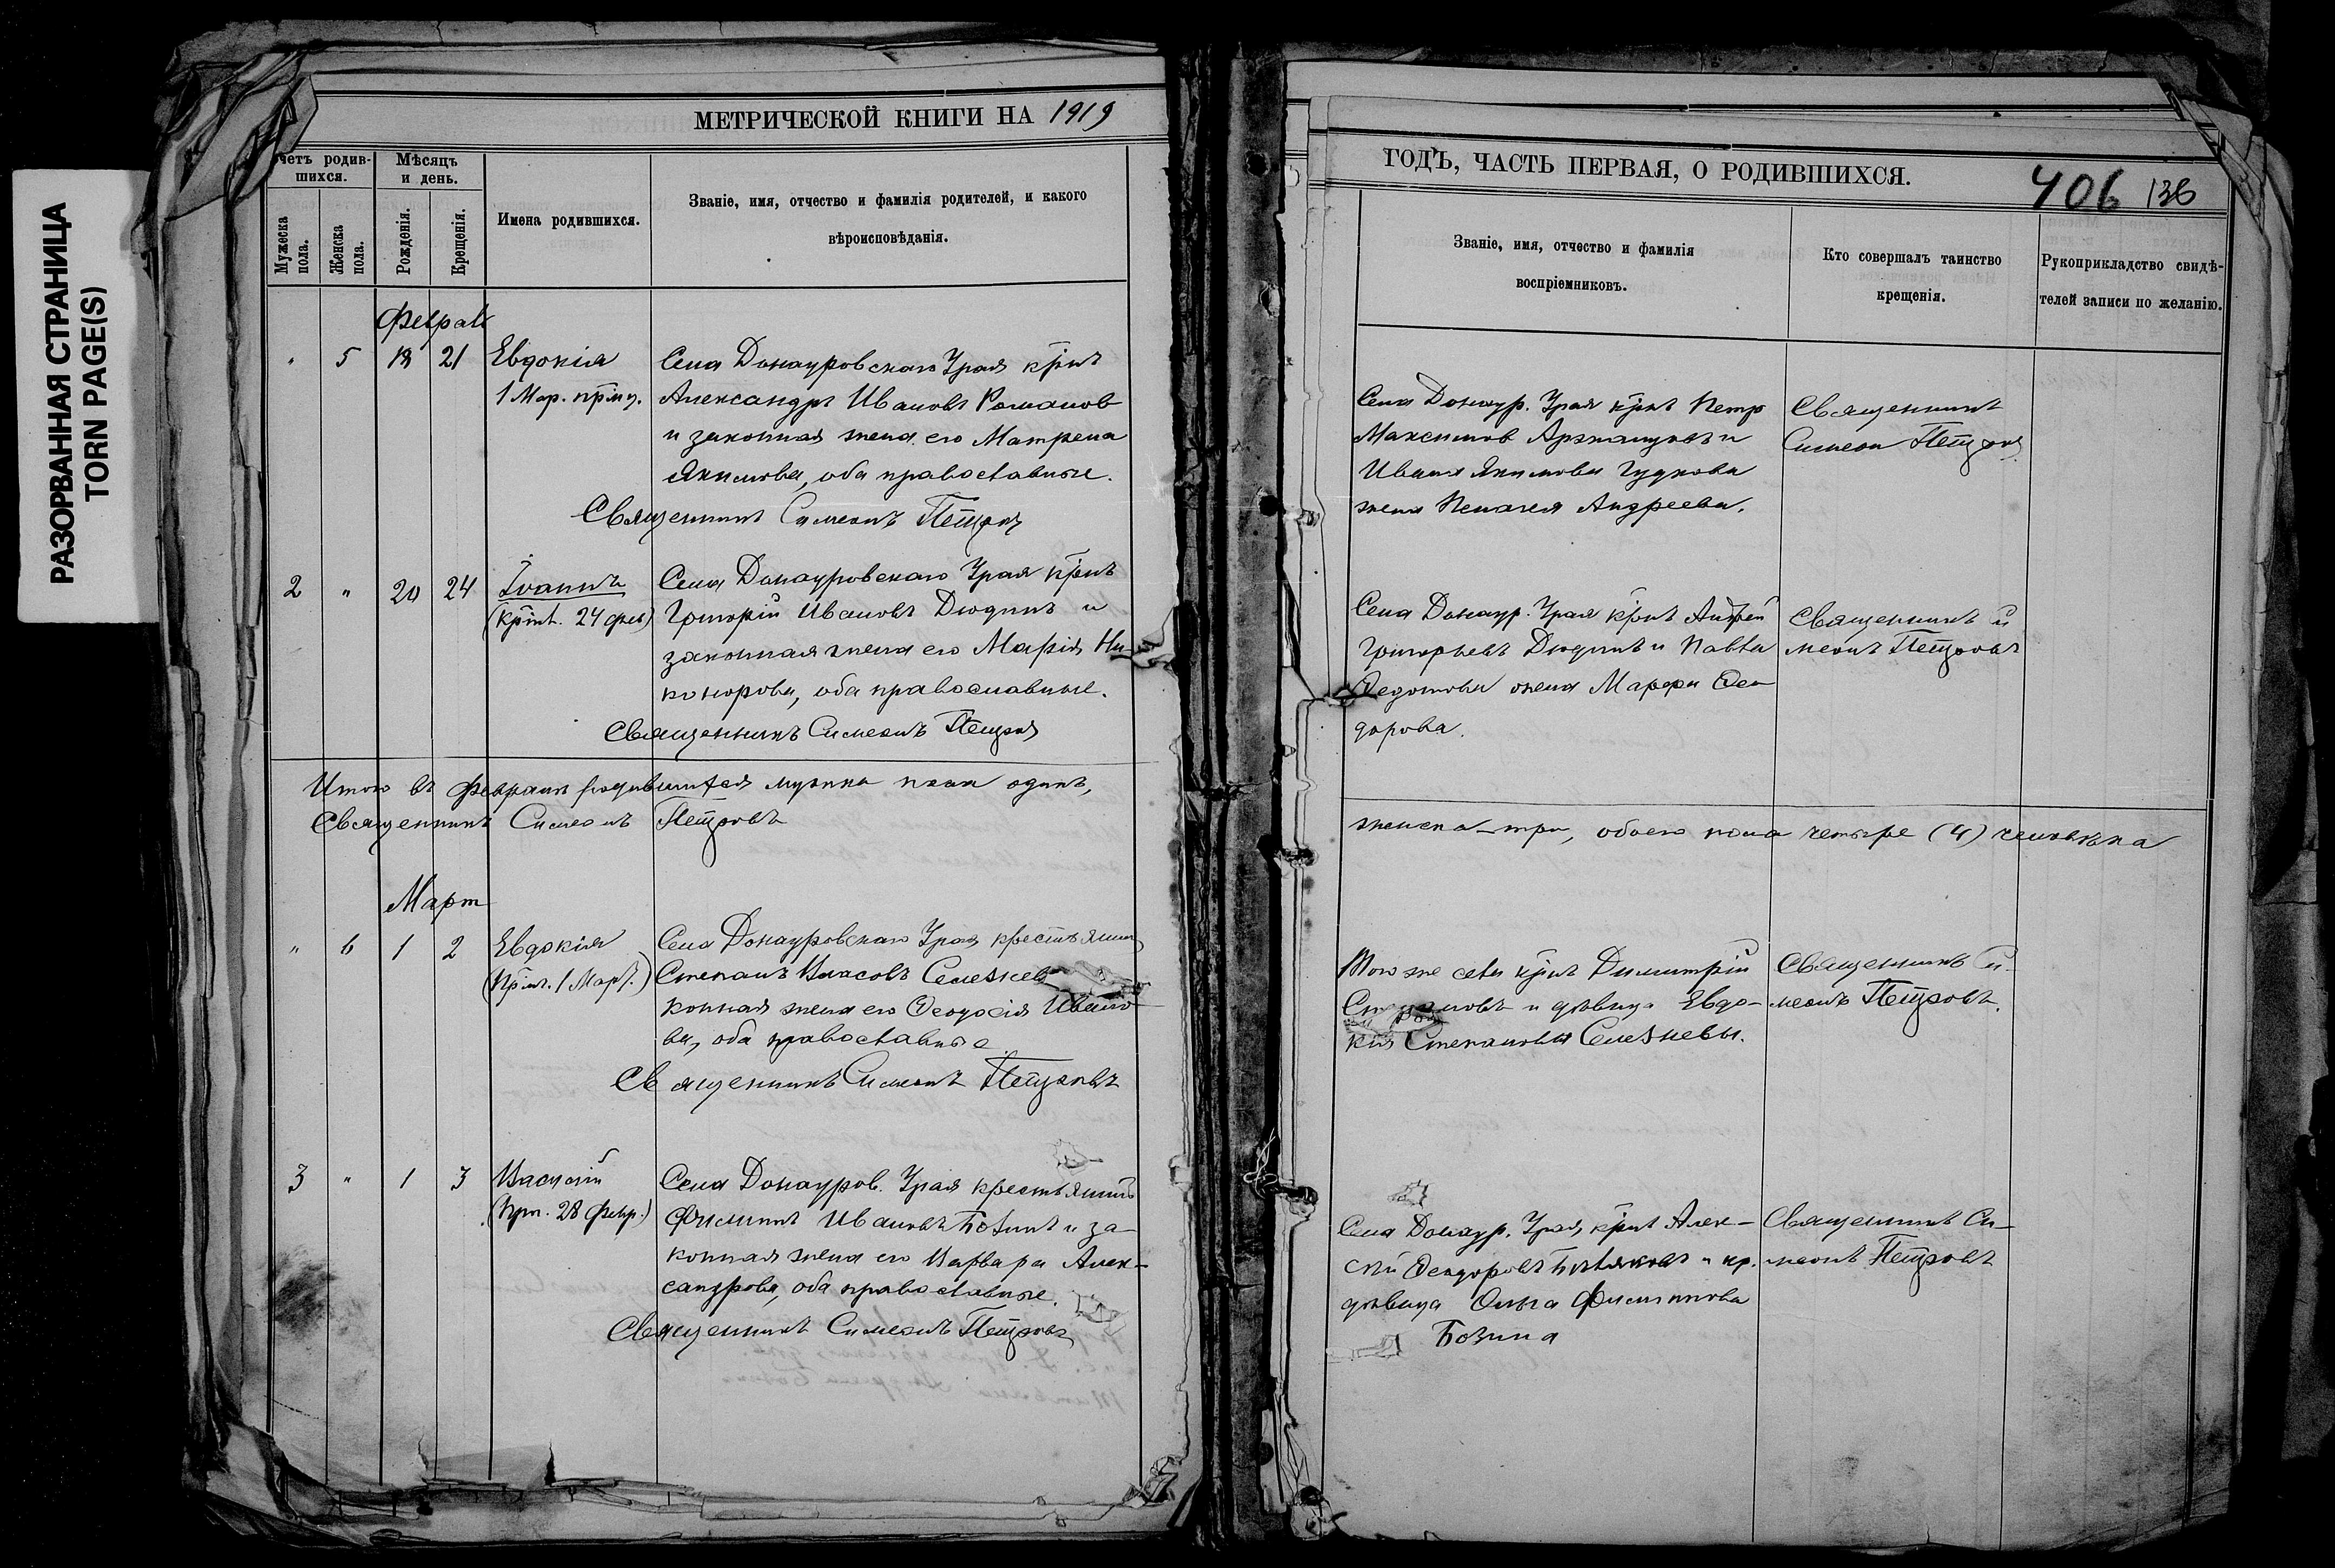 РАЗОРВАННАЯ СТРАНИЦА
TORN PAGE(S)
МЕТРИЧЕСКОЙ КНИГИ НА 1919
четъ родив-
шихся.
Мѣсяцъ
и день.
Мужеска
пола.
Женска
пола.
Рожденія.
Крещенія.
Имена родившихся.
Званіе, имя, отчество и фамилія родителей, и какого
вѣроисповѣданія.
Февраль
" 5 18 21 Евдокія Села Донауровскаго Урая кр̃нъ
1 Мар. Александръ Ивановъ Романов
и законная жена его Матрена
Якимова, оба православные.
Священникъ Симеонъ Петровъ
2 " 20 24 Іоаннъ Села Донауровскаго Урая кр̃нъ
24 фев) Григорій Ивановъ Дюдинъ и
законная жена его Марія Ни-
канорова, оба православные.
Священникъ Симеонъ Петровъ
Итого въ Февралѣ родившихся мужска пола одинъ,
Священникъ Симеонъ Петровъ
Март
" 6 1 2 Евдокія Села Донауровскаго Урая крестьянин
1 Март.) Степанъ Власовъ Селезнев
конная жена его Ѳеодосія Ивано-
ва, оба православные
Священникъ Симеонъ Петровъ
3 " 1 3 Василій Села Донауров. Урая крестьянинъ
28 Февр.) Филиппъ Ивановъ Бозинъ и за-
конная жена его Варвара Алек-
сандрова, оба православные.
Священникъ Симеонъ Петровъ
ГОДЪ, ЧАСТЬ ПЕРВАЯ, О РОДИВШИХСЯ.
406 136
Званіе, имя, отчество и фамилія
воспріемниковъ.
Кто совершалъ таинство
крещенія.
Рукоприкладство свидѣ-
телей записи по желанію.
Села Донаур. Урая кр̃нъ Петр Священникъ
Максимов и Симеон Петров
Ивана Якимова Гудкова
жена Пелагея Андреева.
Села Донаур. Урая кр̃нъ Андрей Священникъ Си
Григорьевъ Дюдинъ и Павла меонъ Петровъ
Ѳедотова жена Марфа Ѳео-
дорова.
женска – три, обоего пола четыре (4) человѣка
Того же села кр̃нъ Димитрій Священникъ Си-
Степановъ и дѣвица Евдо- меонъ Петровъ.
кія Степанова Селезневы.
Села Донаур. Урая, кр̃нъ Алек- Священникъ Си-
сѣй Ѳеодоровъ и кр. меонъ Петровъ
дѣвица Ольга Филиппова
Бозина